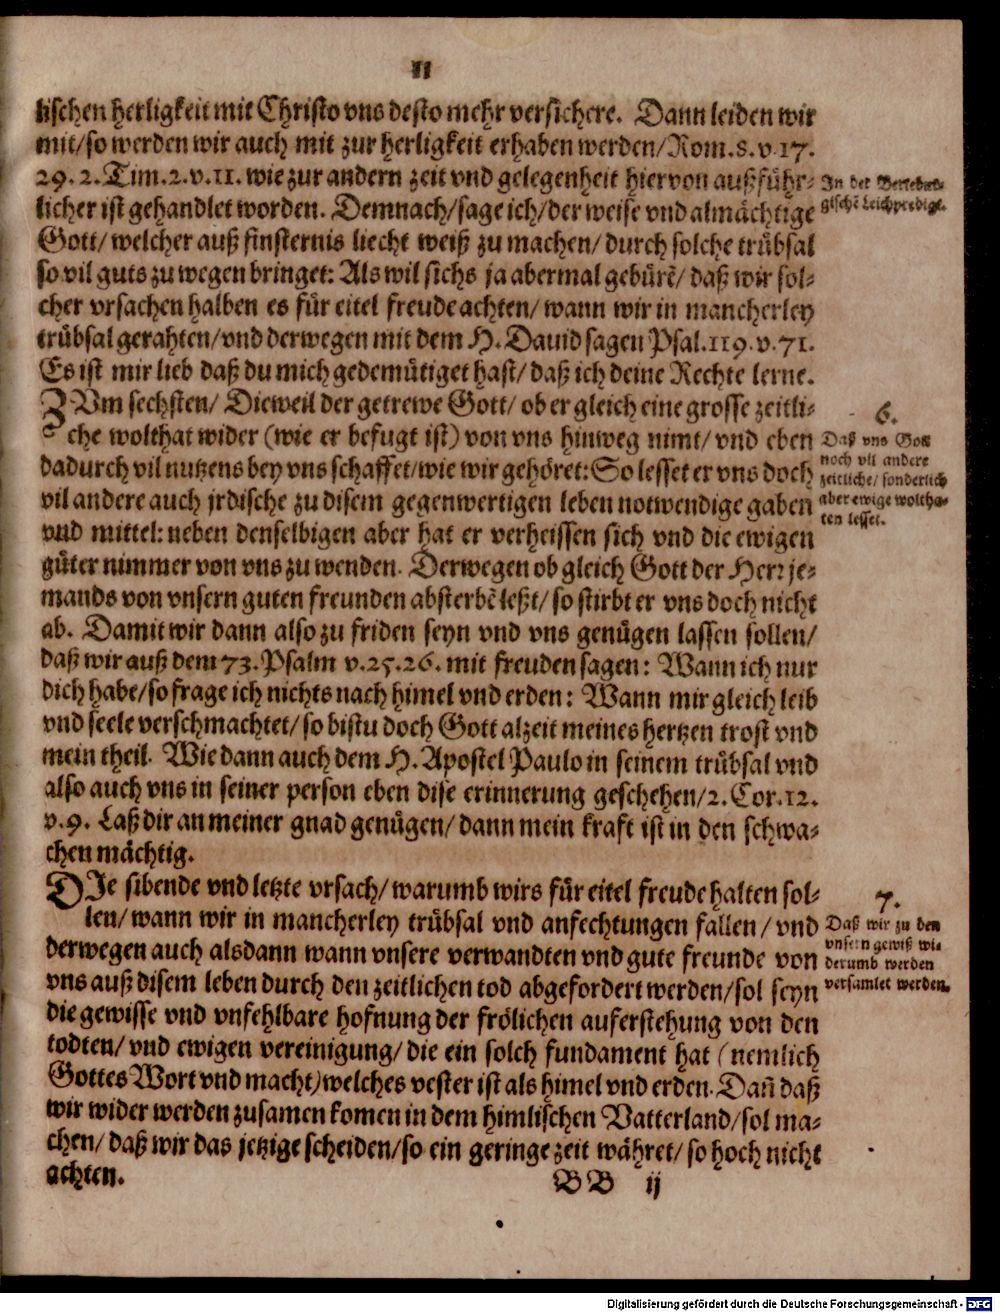 11
lischen herligkeit mit Christo vns desto mehr versichere. Dann leiden wir
mit/ so werden wir auch mit zur herligkeit erhaben werden/ Rom. 8. v. 17.
29. 2. Tim. 2. v. 11. wie zur andern zeit vnd gelegenheit hiervon außführ-
licher ist gehandlet worden. Demnach/ sage ich/ der weise vnd almächtige
Gott/ welcher auß finsternis liecht weiß zu machen/ durch solche trübsal
so vil guts zu wegen bringet: Als wil sichs ja abermal gebürẽ/ daß wir sol-
cher vrsachen halben es für eitel freude achten/ wann wir in mancherley
trübsal gerahten/ vnd derwegen mit dem H. Dauid sagen Psal. 119. v. 71.
Es ist mir lieb daß du mich gedemütiget hast/ daß ich deine Rechte lerne.
ZVm sechsten/ Dieweil der getrewe Gott/ ob er gleich eine grosse zeitli-
che wolthat wider (wie er befugt ist) von vns hinweg nimt/ vnd eben
dadurch vil nutzens bey vns schaffet/ wie wir gehöret: So lesset er vns doch
vil andere auch jrdische zu disem gegenwertigen leben notwendige gaben
vnd mittel: neben denselbigen aber hat er verheissen sich vnd die ewigen
güter nimmer von vns zu wenden. Derwegen ob gleich Gott der Herr je-
mands von vnsern guten freunden absterbẽ leßt/ so stirbt er vns doch nicht
ab. Damit wir dann also zu friden seyn vnd vns genügen lassen sollen/
daß wir auß dem 73. Psalm v. 25. 26. mit freuden sagen: Wann ich nur
dich habe/ so frage ich nichts nach himel vnd erden: Wann mir gleich leib
vnd seele verschmachtet/ so bistu doch Gott alzeit meines hertzen trost vnd
mein theil. Wie dann auch dem H. Apostel Paulo in seinem trübsal vnd
also auch vns in seiner person eben dise erinnerung geschehen/ 2. Cor. 12.
v. 9. Laß dir an meiner gnad genügen/ dann mein kraft ist in den schwa-
chen mächtig.
DIe sibende vnd letzte vrsach/ warumb wirs für eitel freude halten sol-
len/ wann wir in mancherley trübsal vnd anfechtungen fallen/ vnd
derwegen auch alsdann wann vnsere verwandten vnd gute freunde von
vns auß disem leben durch den zeitlichen tod abgefordert werden/ sol seyn
die gewisse vnd vnfehlbare hofnung der frölichen auferstehung von den
todten/ vnd ewigen vereinigung/ die ein solch fundament hat (nemlich
Gottes Wort vnd macht) welches vester ist als himel vnd erden. Dañ daß
wir wider werden zusamen komen in dem himlischen Vatterland/ sol ma-
chen/ daß wir das jetzige scheiden/ so ein geringe zeit währet/ so hoch nicht
achten.
BB ij
In der
gischẽ Leichpredigt.
6.
Daß vns Gott
noch vil andere
zeitliche/ sonderlich
aber ewige woltha-
ten lesset.
7.
Daß wir zu den
vnsern gewiß wi-
derumb werden
versamlet werden.
Digitalisierung gefördert durch die Deutsche Forschungsgemeinschaft - DFG